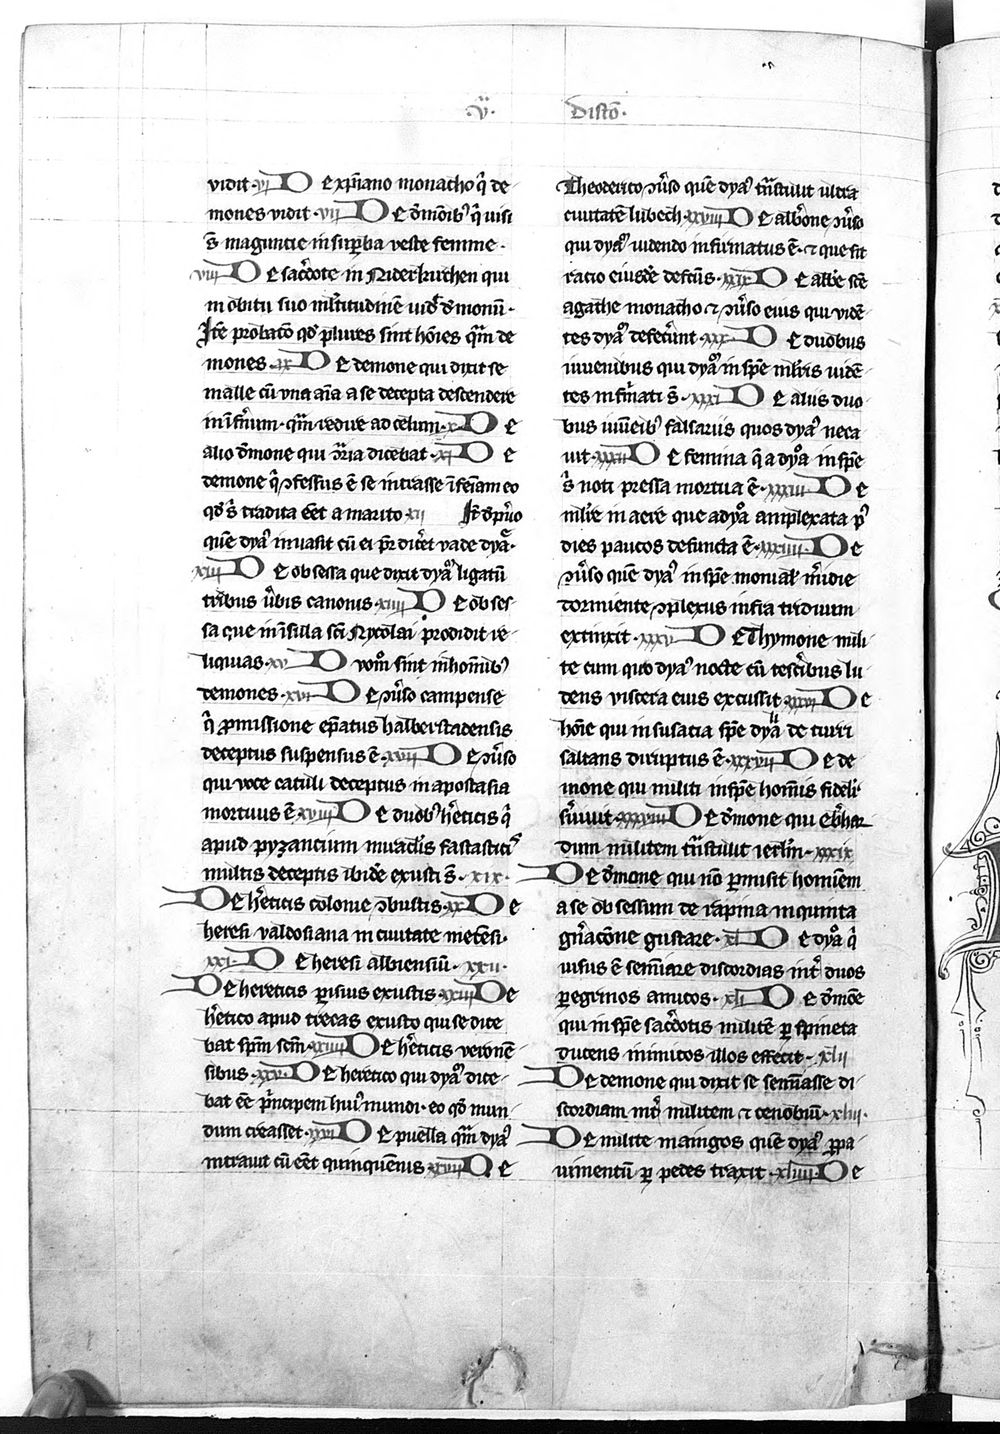 .v. Distco.
vidit .vi. De xp̄iano monacho q̇ de
mones vidit .vii. De d̄monib⁹ q̇ visi
s̄ maguntie in suꝑba veste femine.
viii. De sac̄dote in Niderkirchen qui
in obitu suo mltitudinē vid̄ demonū.
Itē probatō qd̄ plures sint hōies q̄m de
mones .ix. De demone qui dixit se
malle cū vna aīa a se decepta descendere
in īfernum q̄m redire ad celum .x. De
alio demone qui ꝯtraria dicebat .xi. De
demone q̇ ꝯfessus ē se intrasse ī feīam eo
qd̄ s̄ tradita ēet a marito .xii. Itē de puero
quē dyaꝰ inuasit cū ei pr̄ dic̄et vade dyaꝰ.
xiii. De obsessa que dixit dyaꝰ ligatū
tribus v̄bis canonis .xiiii. De obses
sa que in īsilla scī Nycolai prodidit re
liquias .xv. Dūom̄ sint in hominib⁹
demones .xvi. De ꝯūso campense
q̇ ꝓmissione ep̄atus halberstadensis
deceptus suspensus ē .xvii. De ꝯūso
qui voce cuculi deceptus in apostasia
mortuus ē .xviii. De duob⁹ h̄eticis q̇
apud pyzancium miraclis fantasticis
multis deceptis ibidē exusti s̄. xix.
De h̄eticis colonie ꝯbustis .xx. De
heresi valdosiana in ciuitate metēsi.
xxi. De heresi albiensiū. xxii.
De hereticis parisius exustis .xxiii. De
h̄etico apud trecas exusto qui se dice
bat spm̄ scm̄ .xxiiii. De h̄eticis veronē
sibus .xxv. De heretico qui dyaꝰ dice
bat ēe p̄ncipem huiꝰ mundi. eo qd̄ mun
dum creasset .xxvi. De puella q̄m dyaꝰ
intrauit cū ēet quinquēnis .xxvii. De
Theoderico ꝯūso quē dyaꝰ trāstulit ultra
ciuitatē lubech .xxviii. De albōne ꝯūso
qui dyaꝰ uidendo infirmatus ē. ⁊ que sit
racio eiusdē defectus .xxix. De abbe scē
agathe monacho ⁊ ꝯūso eius qui vidē
tes dyaꝰ defec̄unt .xxx. De duobus
iuuenibus qui dyaꝰ in sp̄e mulīris uidē
tes infirmati s̄. xxxi. De aliis duo
bus iuuēcib⁹ falsariis quos dyaꝰ neca
uit .xxxii. De femina q̄ a dyaꝰ in sp̄e
s̄ noti pressa mortua ē .xxxiii. De
muliere in aere que a dyaꝰ amplexata p⁹
dies paucos defuncta ē .xxxiiii. De
ꝯūso quē dyaꝰ in sp̄e monialis meridie
dormiente ꝯplexus infra triduum
extinxit .xxxv. De Thymone mili
te cum quo dyaꝰ nocte cū tesseribus lu
dens viscera eius excussit .xxxvi. De
hōie qui in susacia sp̄e dyaꝰ de turri
saltans diruptus ē .xxxvii. De de
mone qui militi in sp̄e hominis fidelit̄
s̄uiuit .xxxviii. De d̄mone qui Ebhar
dum militem trāstulit ierlm̄ .xxxix.
De d̄mone qui nō ꝑmisit hominem
a se obsessum de rapina in quinta
gn̄acōne gustare .xl. De dyaꝰ q̇
uisus ē semīare discordias int̄ duos
ꝑegrinos amicos .xli. De d̄mōe
qui in sp̄e sac̄dotis militē ꝑ spineta
ducens inimicos illos effecit. xlii.
De demone qui dixit se seminasse di
scordiam int̄ militem ⁊ cenobiū .xliii.
De milite maingos quē dyaꝰ ꝑ pa
uimentū ꝑ pedes traxit .xliiii. De